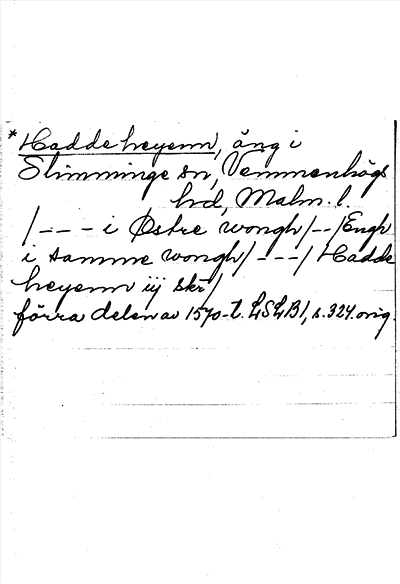 *Haddeheyenn, äng i
Slimminge sn, Vemmenhögs
hd, Malm. l.
/--- i Østre wongh/--/Engh
i samme wongh/---/Hadde
heyenn iij skr/
förra delen av 1570-t. LSLB1, s.324.orig.